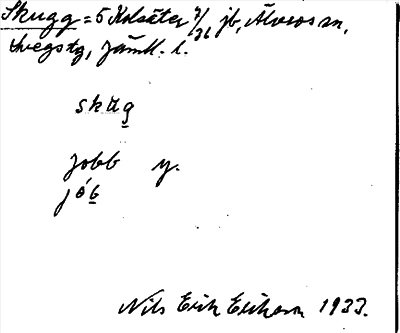 Skugg = 5 Kolsäter 2/36 jb, Älvros sn,
Svegs tg, Jämtl. l.
skug̲
Jobb y.
jób̲
Nils Erik Erikson 1933.